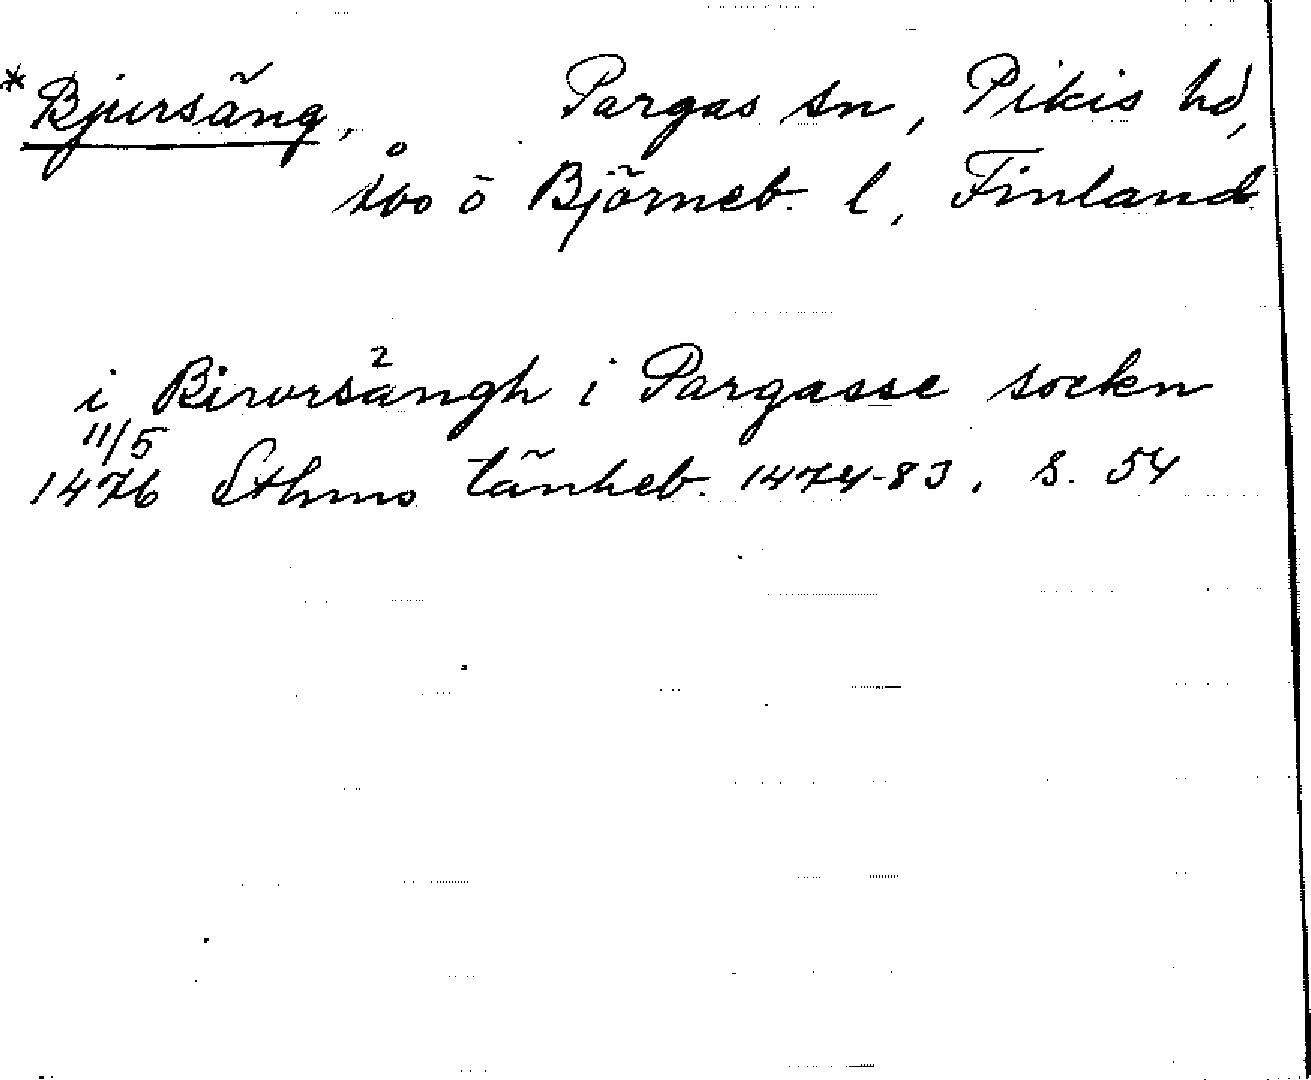 *Bjursäng, Pargas sn, Pikis hd,
Åbo o Björneb. l, Finland
i Birvrsängh i Pargasse sockn
11/5
1476 Sthms tänkeb. 1474-83, s. 54